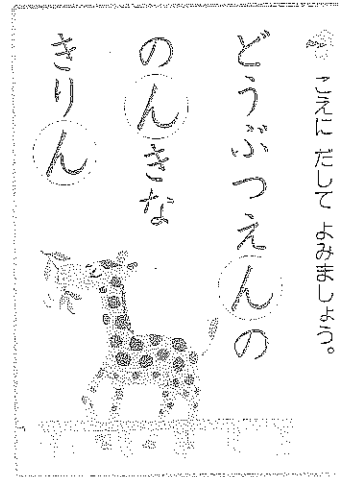 こえに だして よみましょう。
どうぶつえんの
のんきな
きりん